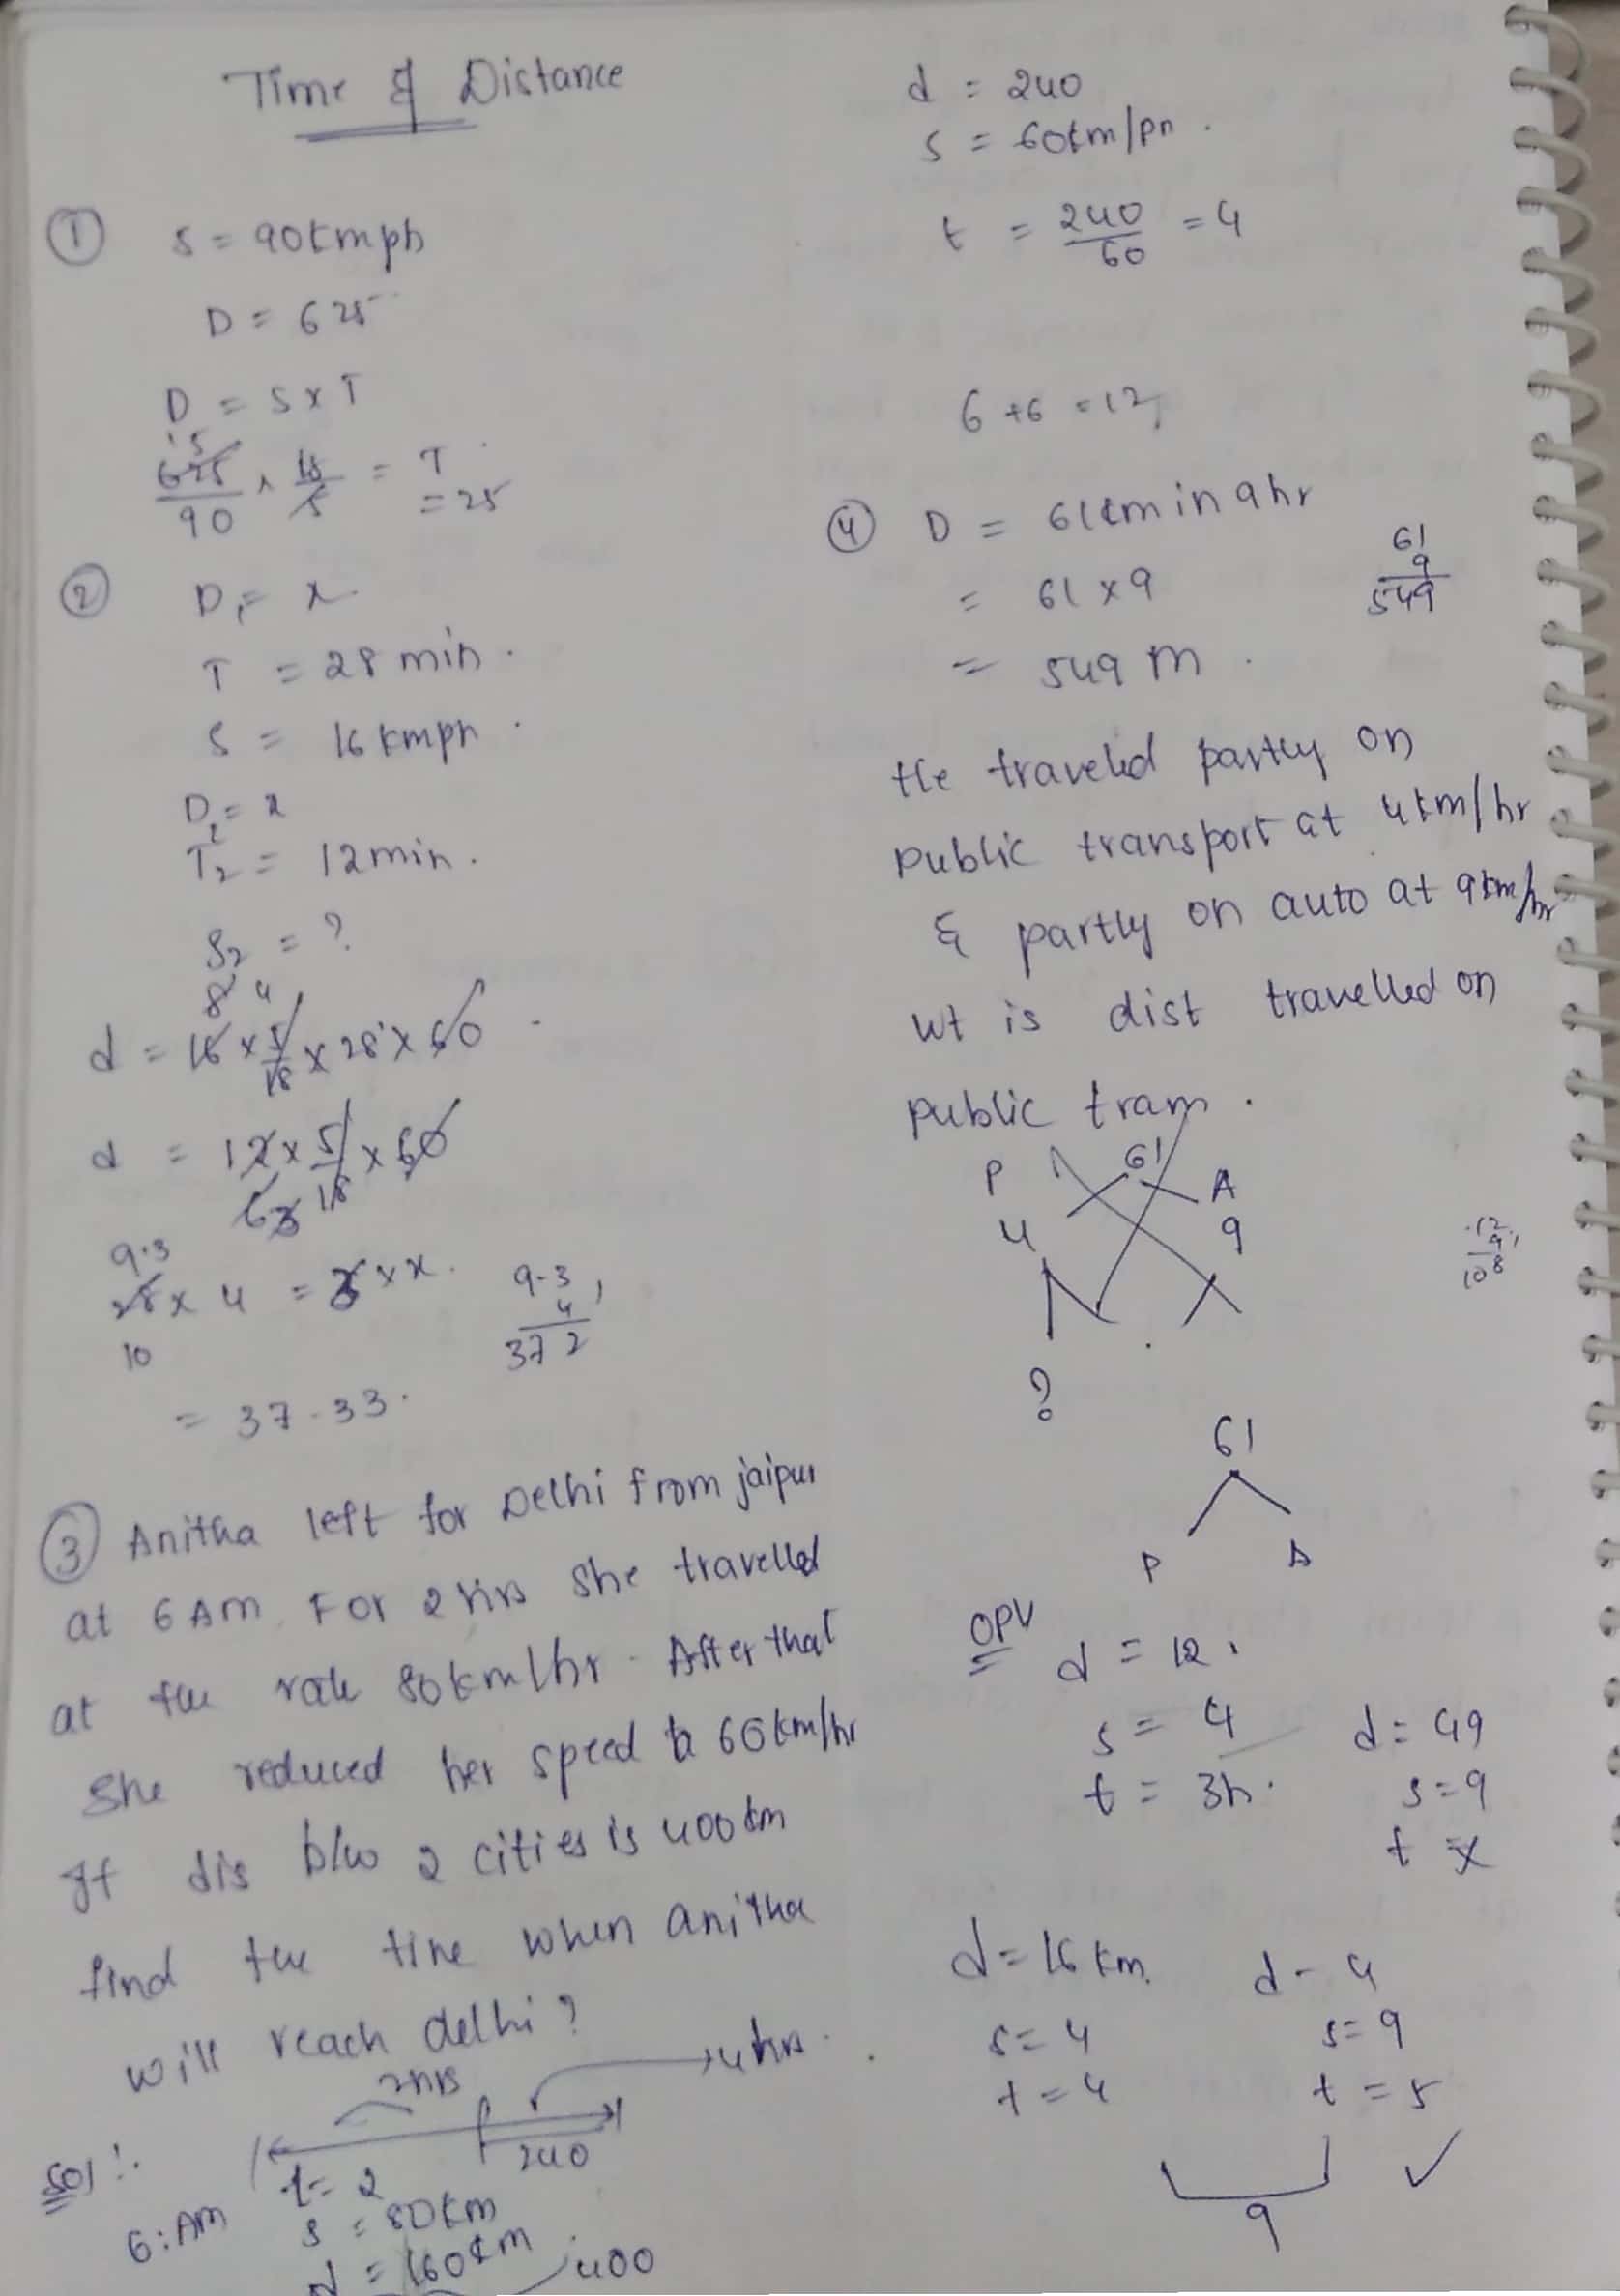 Time & Distance
① S = 90kmph
D = 625
D = S x T
15
625/90 x 18/5 = T
= 25
② D1 = x
T = 28 min.
S = 16 kmph.
D2 = x
T2 = 12min.
S2 = ?
8 4
d = 16 x 5/18 x 28 x 60
d = 12 x 5/18 x 60
63
9.3
28 x 4 = 3 x x.
10
9.3
4
37 2
= 37.33.
③ Anitha left for Delhi from jaipur
at 6 AM. For 2 hrs she travelled
at the rate 80km/hr. After that
She reduced her speed to 60km/hr
If dis b/w 2 cities is 400km
find the time when anitha
will reach delhi?
2hrs
→ 4hrs.
240
Sol:.
6:AM
t = 2
s = 80km
d = 160km
400
d = 240
s = 60km/ph.
t = 240/60 = 4
6 + 6 = 12
④ D = 61km in 9hr
= 61 x 9
= 549 m.
61
9
549
He traveled partly on
public transport at 4km/hr
& partly on auto at 9km/hr
wt is dist travelled on
public tram.
P 61 A
4 9
?
12
9
108
61
P A
OPV
d = 12.
s = 4
t = 3h.
d = 49
s = 9
t = x
d = 16 km.
s = 4
t = 4
d - 4
s = 9
t = 5
9 ✓